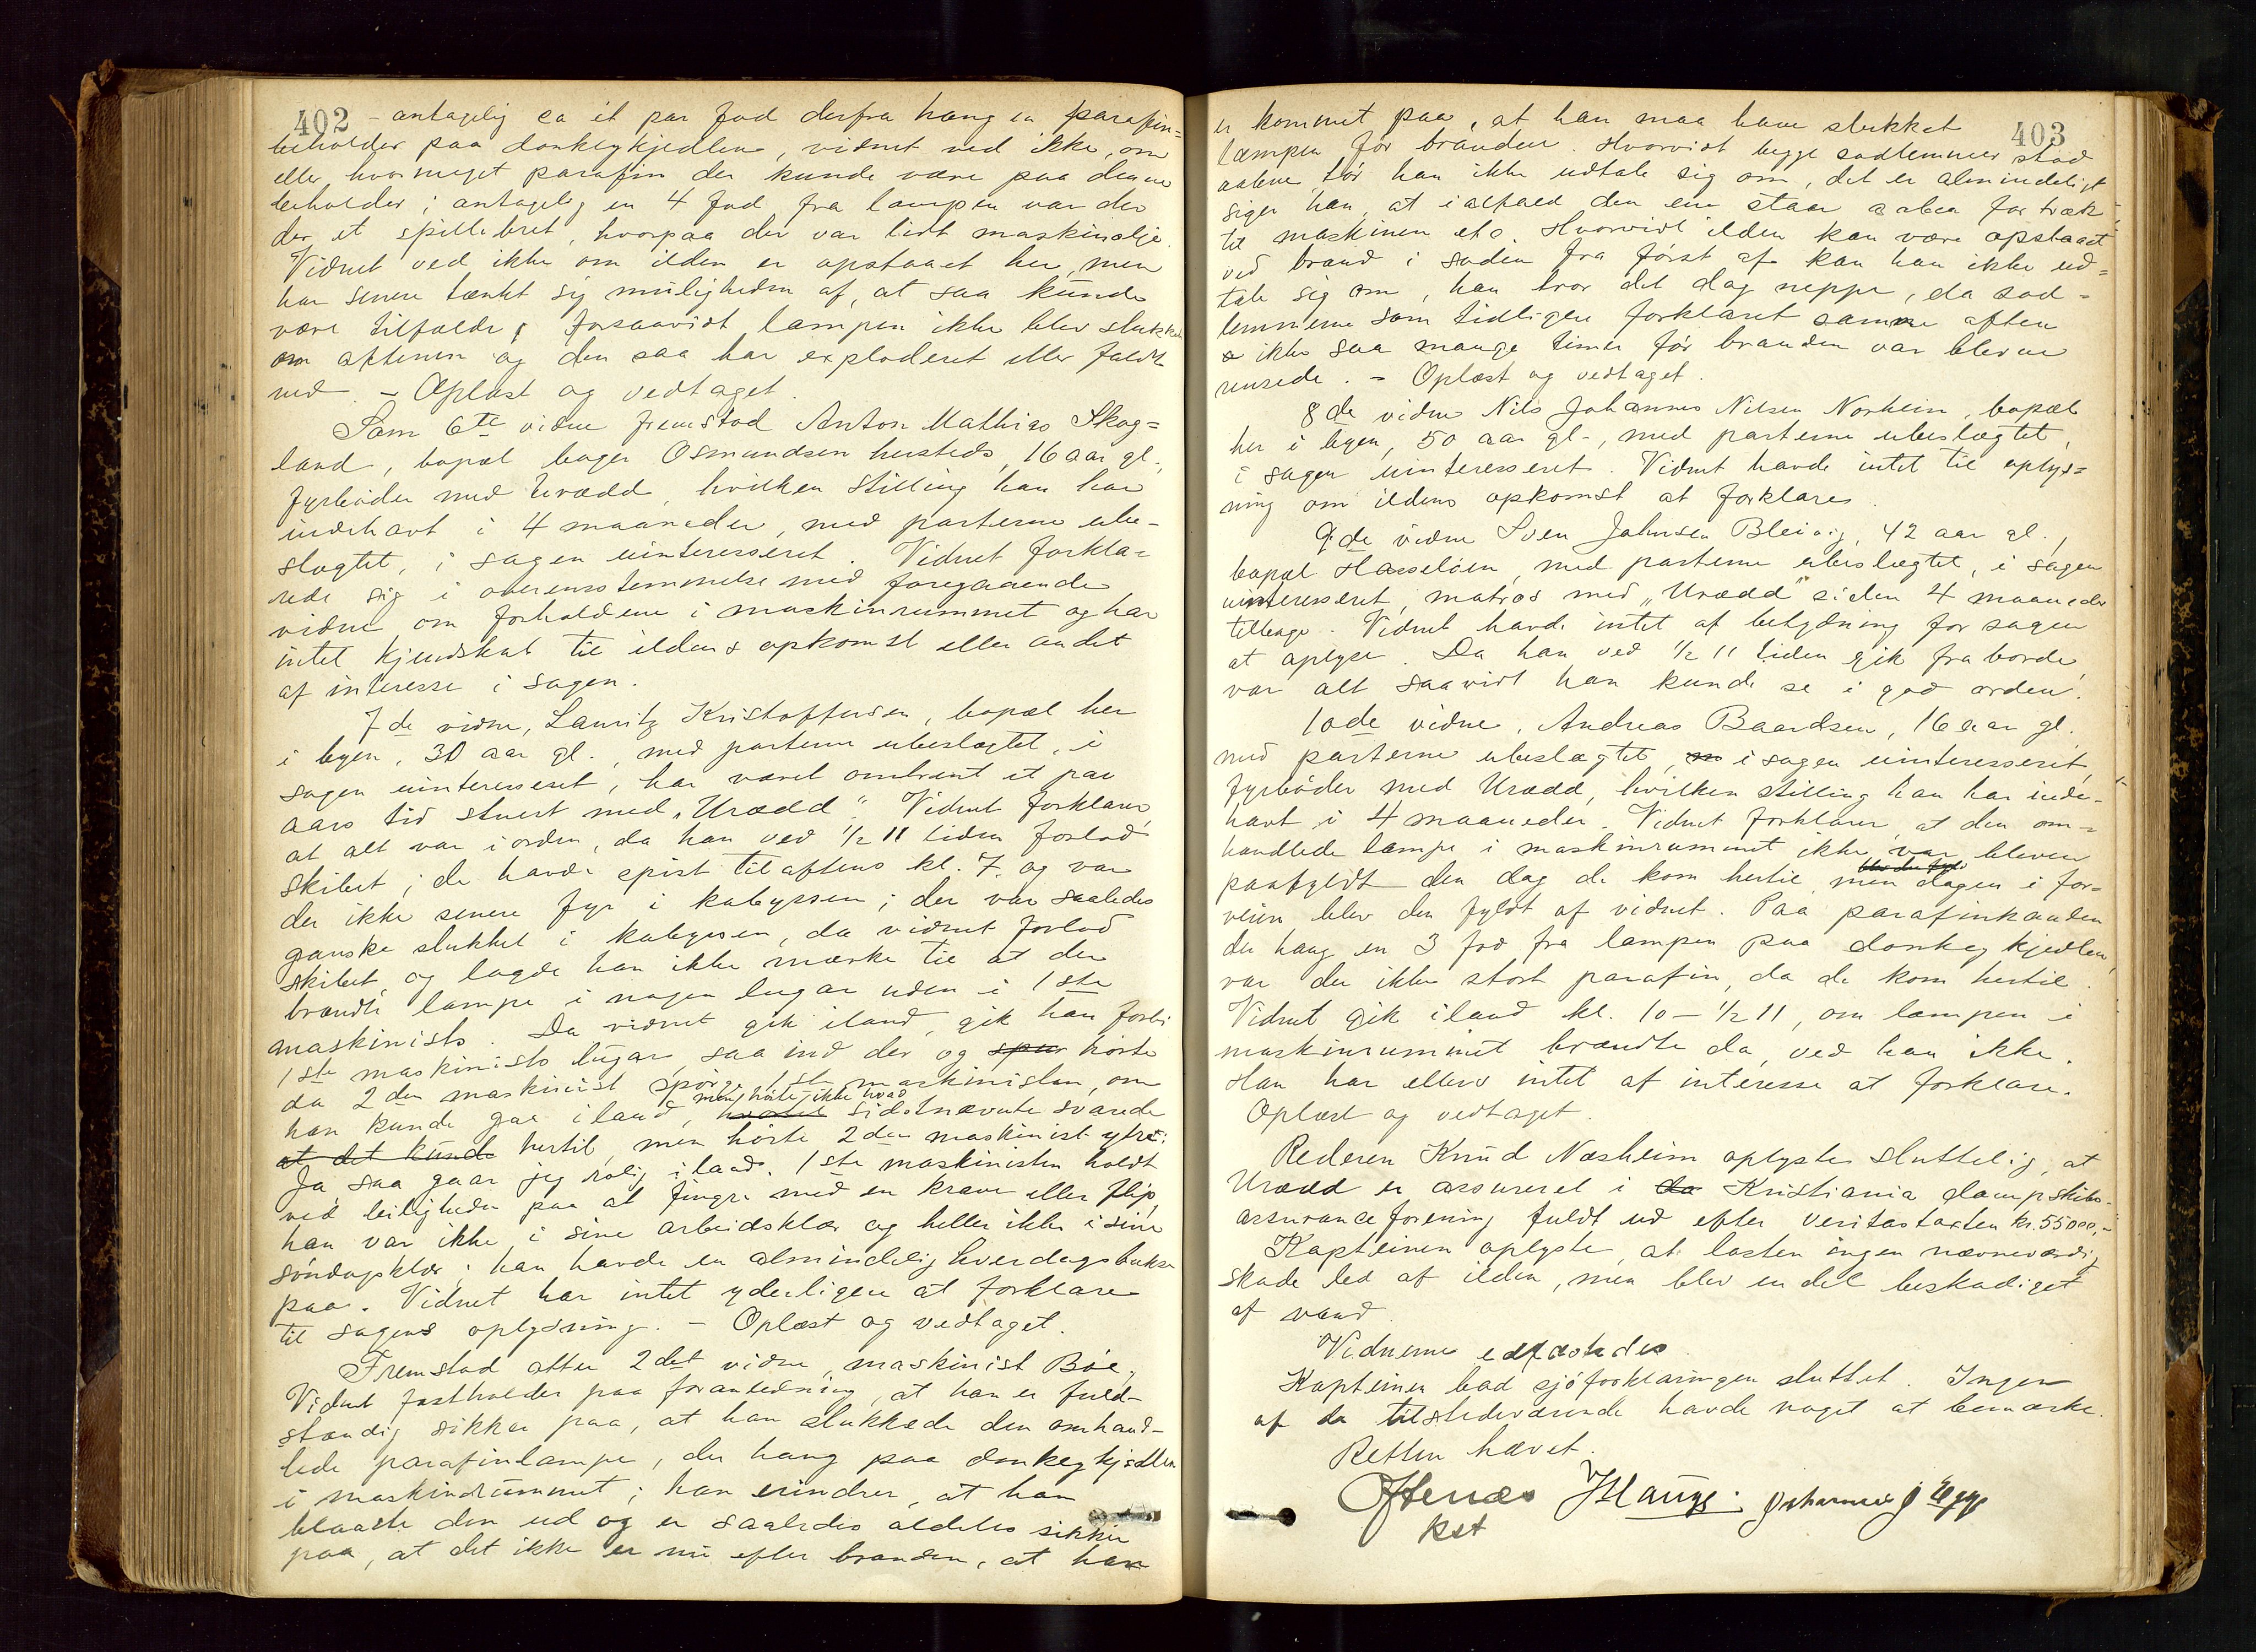 402 - antagelig ca et par fod derfra hang en parafin=
beholder paa donkeykjedlen, vidnet ved ikke, om
eller hvormeget parafin der kunde være paa denne
beholder; antagelig en 4 fod fra lampen var der
der et spillebret, hvorpaa der var lidt maskinolje.
Vidnet ved ikke om ilden er opstaaet her, men
har senere tænkt sig muligheden af, at saa kunde
være tilfælde, forsaavidt lampen ikke blev slukket
om aftenen og den saa har exploderet eller faldt
ned. - Oplæst og vedtaget.
Som 6te vidne fremstod Anton Mathias Skog=
land, bopæl bager Osmundsen hersteds, 16 aar gl.,
fyrbøder med Urædd, hvilken stilling han har
indehavt i 4 maaneder, med parterne ube-
slægtet, i sagen uinteresseret. Vidnet forkla=
rede sig i overensstemmelse med foregaaende
vidne om forholdene i maskinrummet og har
intet kjendskab til ildens opkomst eller andet
af interesse i sagen.
7de vidne, Lauritz Kristoffersen, bopæl her
i byen, 30 aar gl., med parterne ubeslægtet, i
sagen uinteresseret, har været omtrent et par
aars tid stuert med "Urædd". Vidnet forklarer,
at alt var i orden, da han ved 1/2 11 tiden forlod
skibet; de havde spist tilaftens kl. 7 og var
der ikke senere fyr i kabyssen; der var saaledes
ganske slukket i kabyssen, da vidnet forlod
skibet, og lagde han ikke mærke til at der
brændte lampe i nogen lugar uden i 1ste
maskinists. Da vidnet gik iland, gik han forbi
1ste maskinists lugar, saa ind der og spur hørte
da 2den maskinist spørge 1ste maskinisten, om
men hørte ikke hvad
han kunde gaa iland, hvortil sidstnævnte svarede
at det kunde hertil, men hørte 2den maskinist ytre:
Ja saa gaar jeg rolig iland. 1ste maskinisten holdt
ved leiligheden paa at fingre med en krave eller flip,
han var ikke i sine arbeidsklær og heller ikke i sine
søndagsklær; han havde en almindelig hverdagsbukse
paa. Vidnet har intet yderligere at forklare
til sagens oplysning. - Oplæst og vedtaget.
Fremstod atter 2det vidne, maskinist Bøe.
Vidnet fastholder paa foranledning, at han er fuld-
stændig sikker paa, at han slukkede den omhand-
lede parafinlampe, der hang paa donkeykjedlen
i maskinrummet; han erindrer, at han
blaaste den ud og er saaledes aldeles sikker
paa, at det ikke er nu efter branden, at han
403
er kommet paa, at han maa have slukket
lampen før branden. Hvorvidt begge sodlemmer stod
aabne tør han ikke udtale sig om, det er almindeligt
siger han, at ialfald den ene staar aaben for træk
til maskinen etc. Hvorvidt ilden kan være opstaaet
ved brand i soden fra først af kan han ikke ud=
tale sig om, han tror det dog neppe, da sod-
lemmerne som tidligere forklaret samme aften
ikke saa mange timer før branden var blevne
rensede. - Oplæst og vedtaget.
8de vidne Nils Johannes Nilsen Norheim, bopæl
her i byen, 50 aar gl., med parterne ubeslægtet,
i sagen uinteresseret. Vidnet havde intet til oplys=
ning om ildens opkomst at forklare.
9de vidne Sven Johnsen Bleivig, 42 aar gl.,
bopæl Hasseløen, med parterne ubeslægtet, i sagen
uinteresseret, matros med "Urædd" siden 4 maaneder
tilbage. Vidnet havde intet af betydning for sagen
at oplyse. Da han ved 1/2 11 tiden gik fra borde,
var alt saavidt han kunde se i god orden.
10de vidne, Andreas Baardsen, 16 aar gl.
med parterne ubeslægtet, i sagen uinteresseret,
fyrbøder med Urædd, hvilken stilling han har inde-
havt i 4 maaneder. Vidnet forklarer, at den om-
handlede lampe i maskinrummet ikke var bleven
blev den fyldt
paafyldt den dag de kom hertil, men dagen i for=
veien blev den fyldt af vidnet. Paa parafinkanden
der hang en 3 fod fra lampen paa donkeykjedlen,
var der ikke stort parafin, da de kom hertil.
Vidnet gik iland kl. 10 - 1/2 11, om lampen i
maskinrummet brændte da, ved han ikke.
Han har ellers intet af interesse at forklare.
Oplæst og vedtaget.
Rederen Knud Næsheim oplyste sluttelig, at
Urædd er assureret i da Kristiania dampskibs-
assuranceforening fuldt ud efter veritastaxten kr. 55000,-
Kapteinen oplyste, at lasten ingen nævneværdig
skade led af ilden, men blev en del beskadiget
af vand.
Vidnerne edfæstedes.
Kapteinen bad sjøforklaringen sluttet. Ingen
af de tilstedeværende havde noget at bemærke.
Retten hævet.
kst